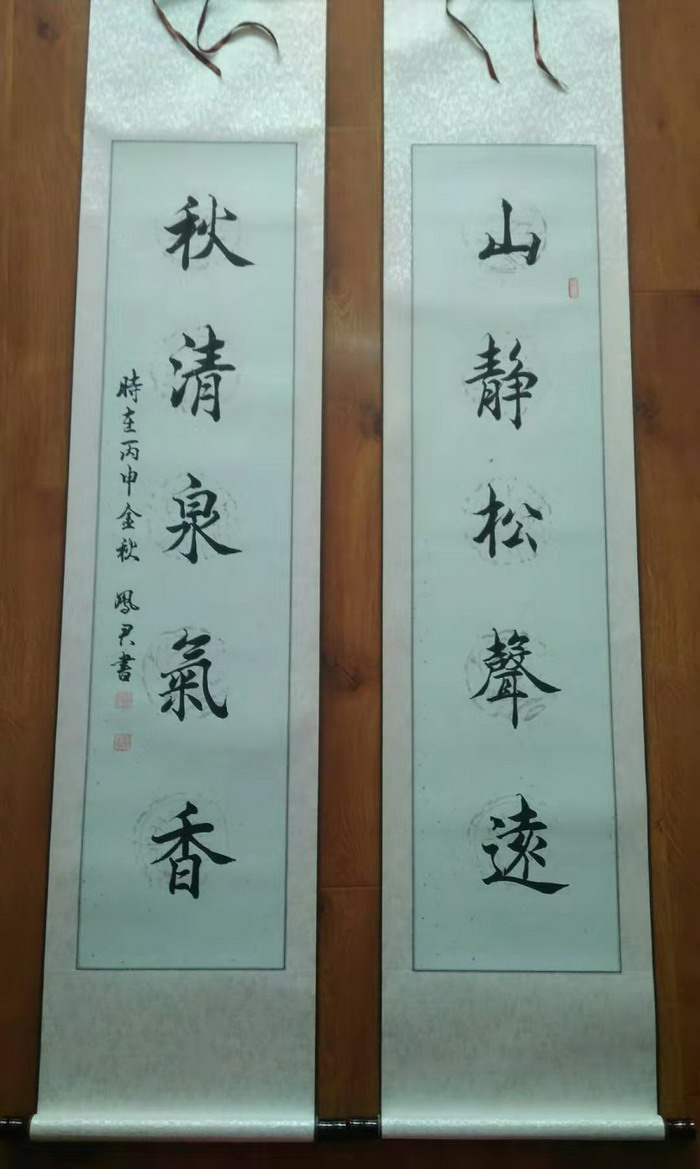 山靜松聲遠
秋清泉氣香
時在丙申金秋 鳳君書